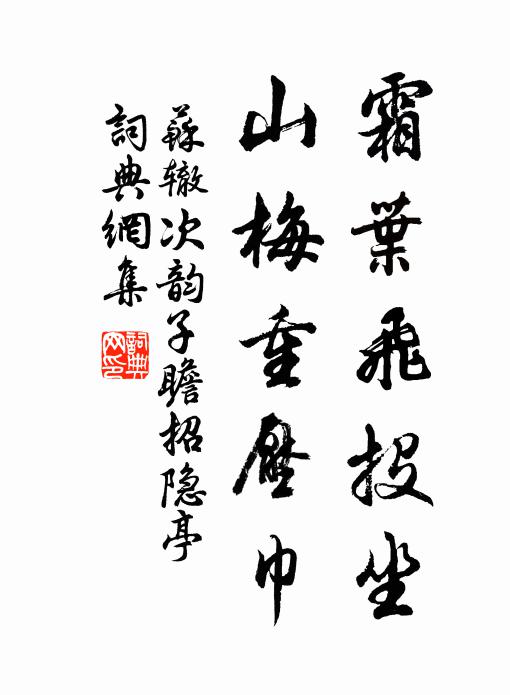 霜葉飛投坐
山梅重壓巾
蘇辙次韵子瞻招隐亭
詞典網集
詞典網印